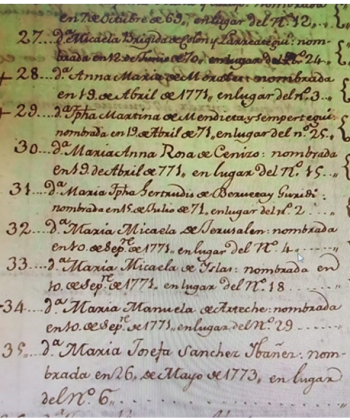 en 7 de Octubre de 69, en lugar del Nº 12..
27...dª Micaela Brigida de Colon y Larreategui: nom-
brada en 12 de Junio de 70, en lugar del Nº 24.
+ 28...dª Anna Maria de : nombrada
en 19 de Abril de 1771, en lugar del nº 3...
+ 29...dª Jpha Martina de Mendieta y Sempertegui:
nombrada en 19 de Abril de 71, en lugar del nº 25.
30...dª Maria Anna Rosa de Cenizo: nombrada
en 19 de Abril de 771, en lugar del Nº 15......
31...dª Maria Jpha Gertrudis de Berueta y Guridi:
nombrada en 15 de Julio de 71, en lugar del nº 2......
32...dª Maria Micaela de Jerusalen: nombrada
en 10. de Sepre. de 1771, en lugar del Nº 4.......
33...dª Maria Micaela de Yslas: nombrada en
10. de Sepre. de 1771, en lugar del Nº 18.......
-34...dª Maria Manuela de Arteche: nombrada
en 10. de Sepre. de 1771, en lugar del Nº 29.......
35...dª Maria Josefa Sanchez Ibañez: nom-
brada en 26, de Mayo de 1773, en lugar
del nº 6.......